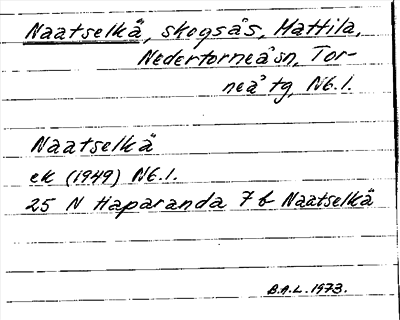 Naatselkä, skogsås, Mattila,
Nedertorneå sn, Tor-
neå tg, Nb.l.
Naatselkä
ek (1949) Nb.l.
25 N Haparanda 7 b Naatselkä
B.A.L. 1973.